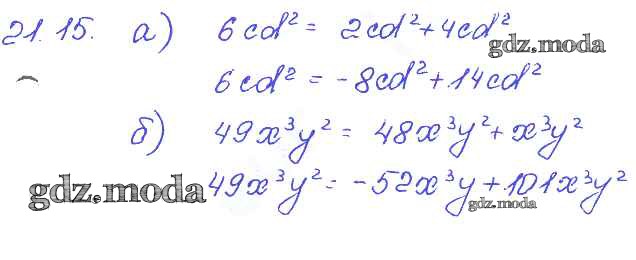 21.15. а) 6cd² = 2cd² + 4cd²
gdz.moda
6cd² = -8cd² + 14cd²
б) 49x³y² = 48x³y² + x³y²
gdz.moda 49x³y² = -52x³y + 101x³y²
gdz.moda